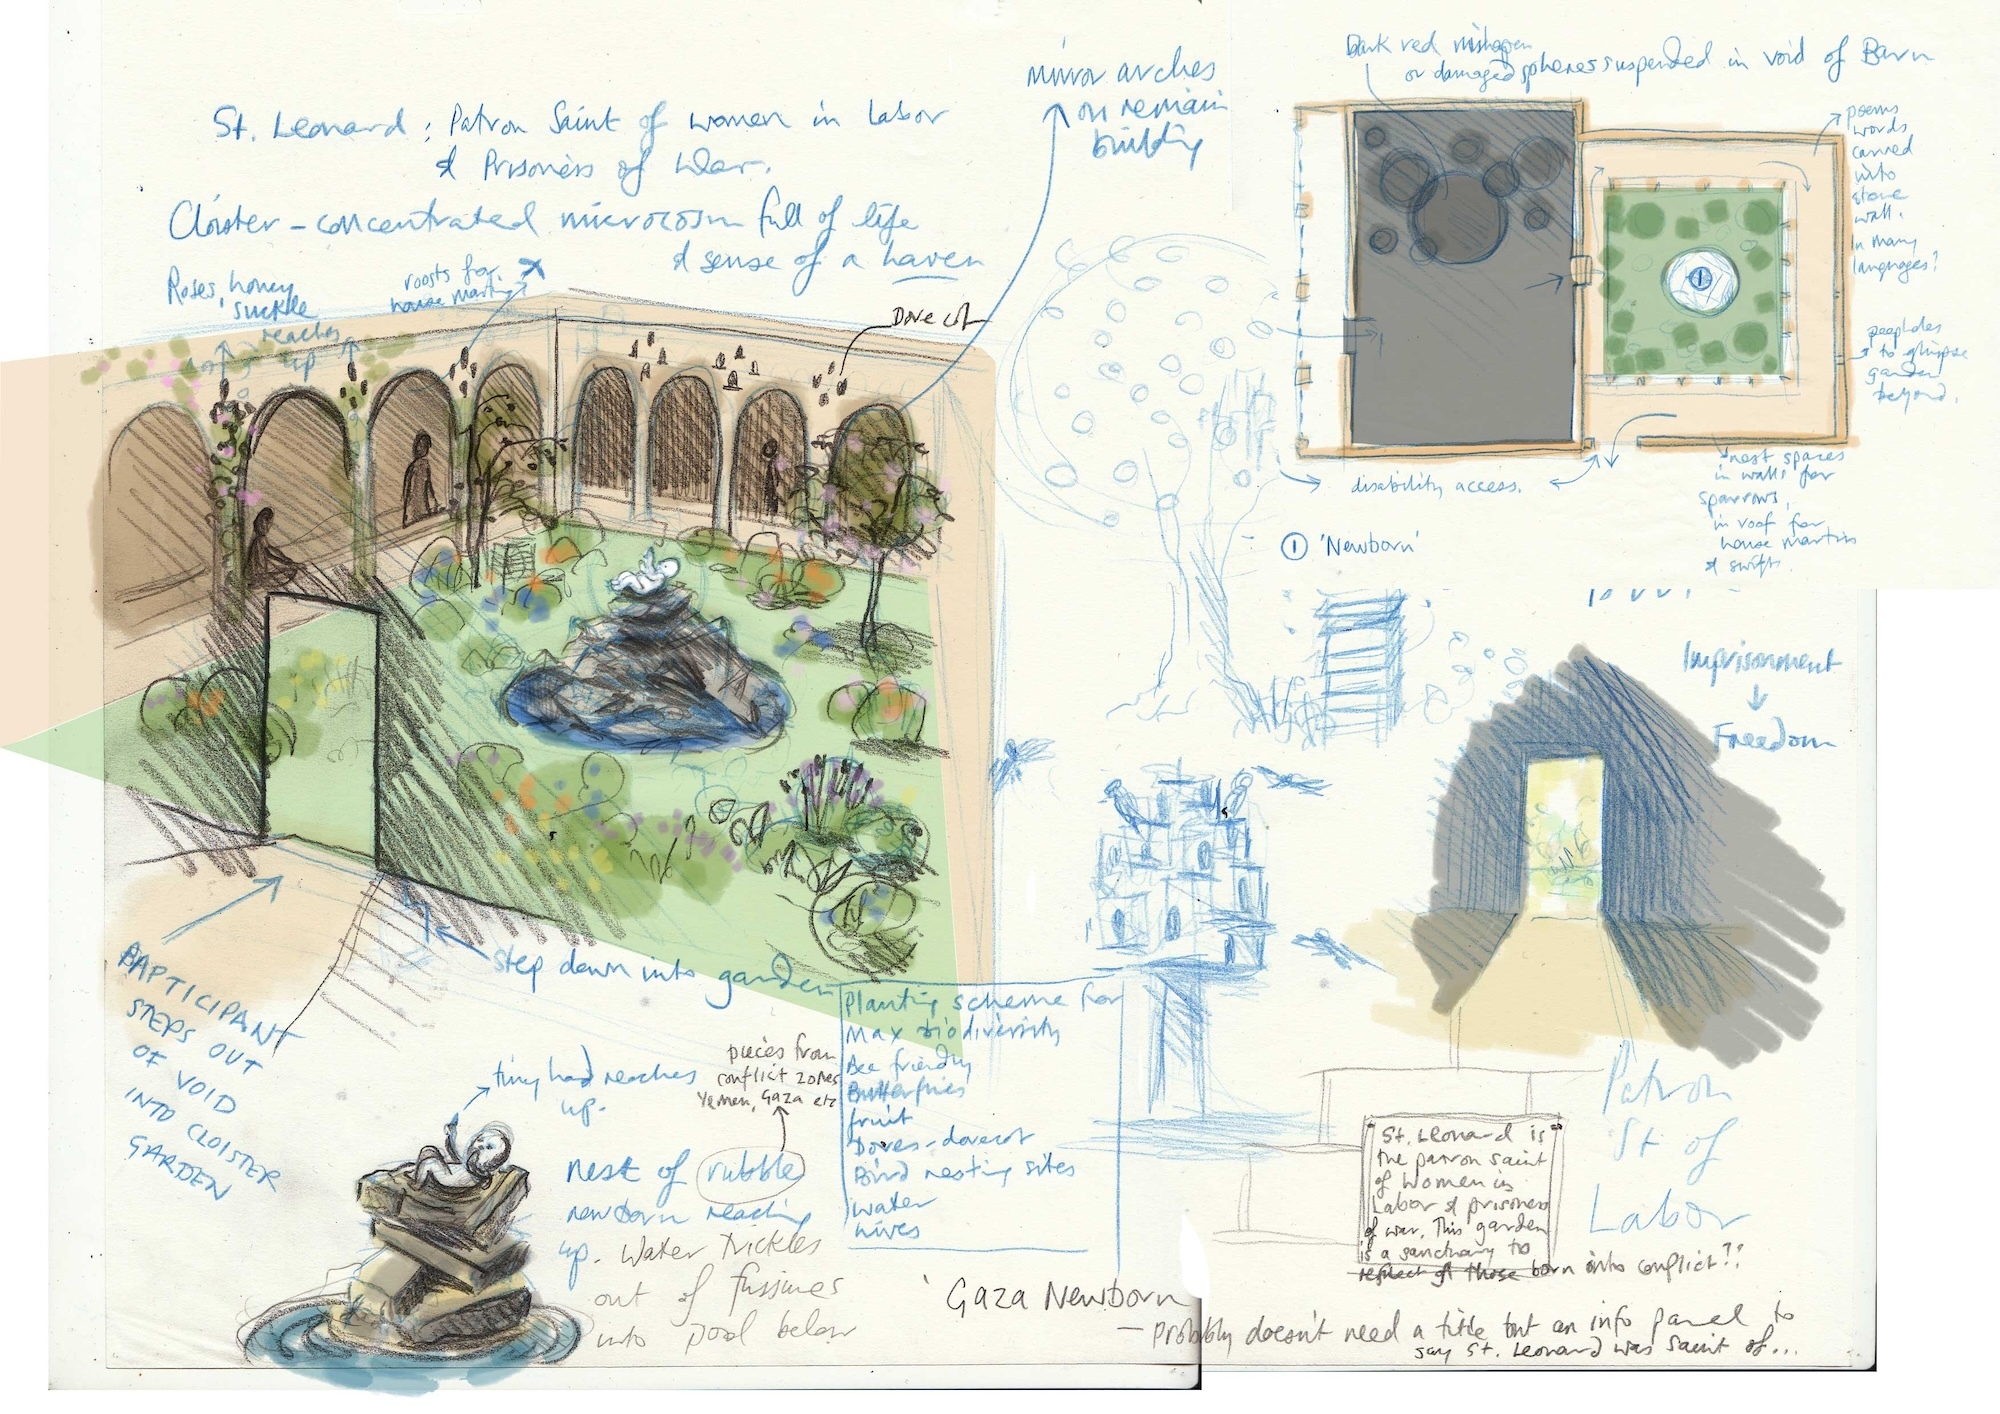 St. Leonard : Patron Saint of women in Labor
& Prisoners of War.
Cloister - concentrated microcosm full of life
& sense of a haven
Roses, honey
suckle
reaches
up
roosts for
house martins
Dove cot
mirror arches
on remain
building
Dark red misshapen
or damaged spheres suspended in void of Barn
poems
words
carved
into
stone
wall.
in many
languages?
peepholes
to glimpse
garden
beyond.
disability access.
nest spaces
in walls for
sparrows,
in roof for
house martins
& swifts.
① 'Newborn'
Imprisonment
Freedom
PARTICIPANT
STEPS OUT
OF VOID
INTO CLOISTER
GARDEN
step down into garden
Planting scheme for
Max biodiversity
Bee friendly
Butterflies
fruit
Doves - dovecot
Bird nesting sites
water
hives
tiny hand reaches
up.
pieces from
conflict zones
Yemen, Gaza etc
nest of rubble
newborn reaching
up. Water trickles
out of fissures
into pool below
'Gaza Newborn
- probably doesn't need a title but an info panel to
say St. Leonard was saint of...
Patron
St of
Labor
St. Leonard is
the patron saint
of women in
Labor & prisoners
of war. This garden
is a sanctuary to
reflect of those born into conflict??